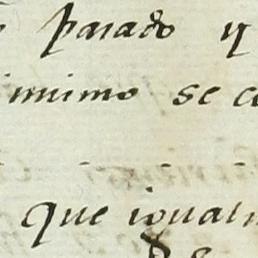 parado y
inimo se co
que igualm